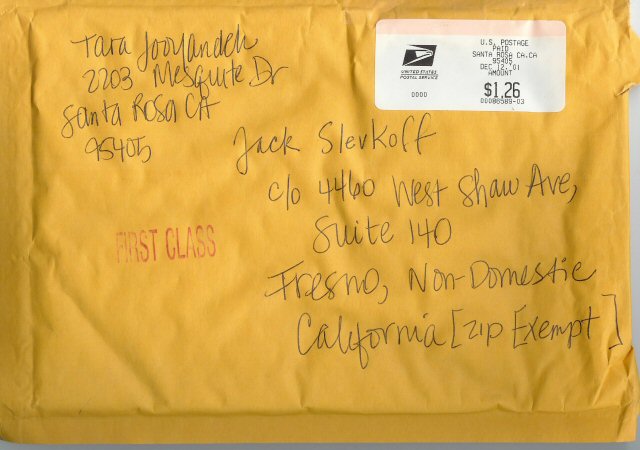 Tara Jooyandeh
2203 Mesquite Dr
Santa Rosa CA
95405
UNITED STATES
POSTAL SERVICE
0000
U.S. POSTAGE
PAID
SANTA ROSA CA.CA
95405
DEC 12.'01
AMOUNT
$1.26
00086589-03
Jack Slevkoff
c/o 4460 West Shaw Ave,
Suite 140
Fresno, Non-Domestic
California [zip Exempt]
FIRST CLASS